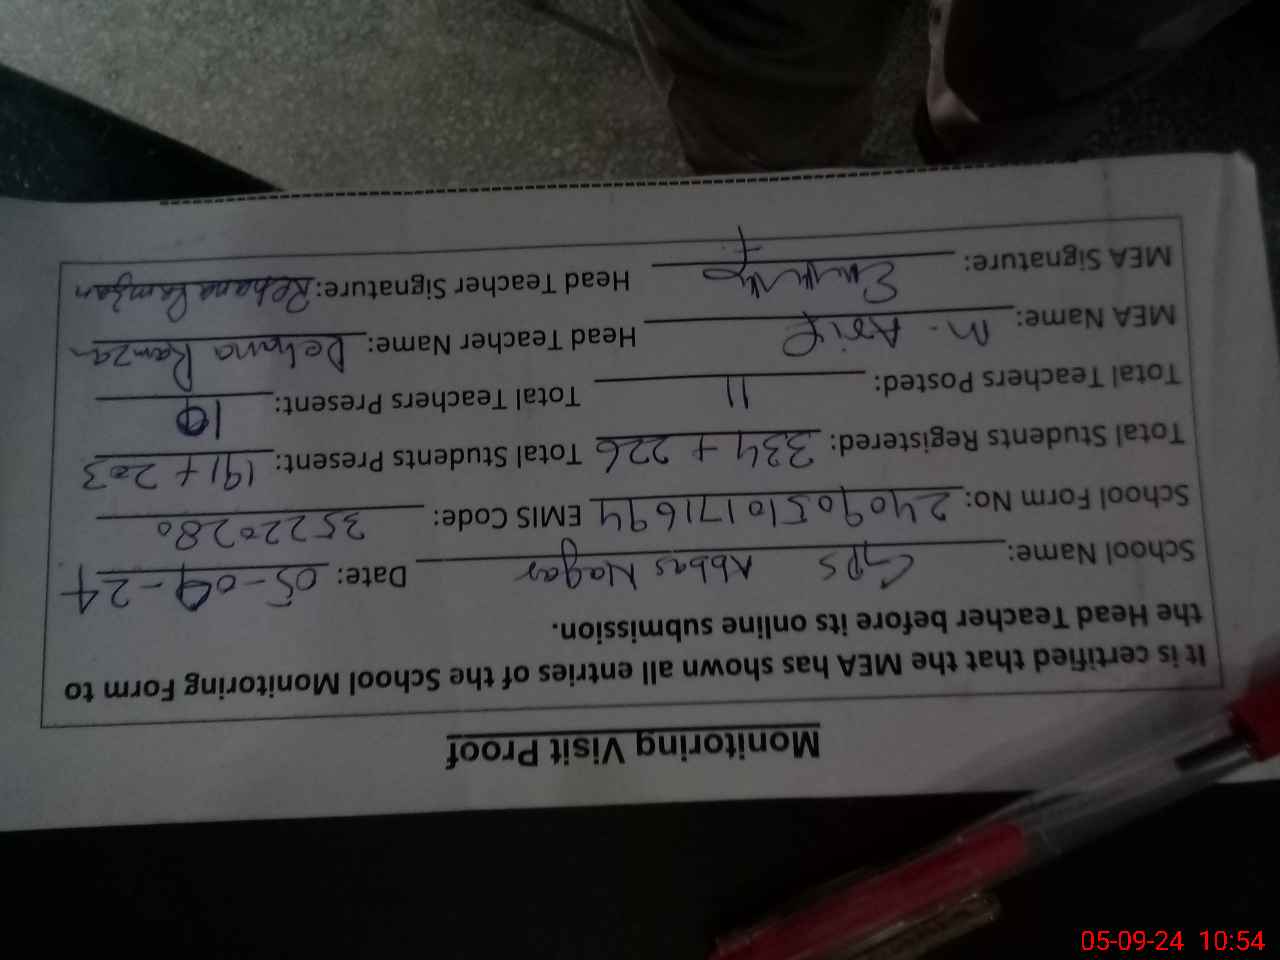 Monitoring Visit Proof
It is certified that the MEA has shown all entries of the School Monitoring Form to
the Head Teacher before its online submission.
School Name: GPS Abbas Nagar Date: 05-09-24
School Form No: 24090510171694 EMIS Code: 35220280
Total Students Registered: 334 + 226 Total Students Present: 191 + 203
Total Teachers Posted: 11 Total Teachers Present: 10
MEA Name: M. Asif Head Teacher Name: Rehana Ramzan
MEA Signature: Head Teacher Signature: Rehana Ramzan
05-09-24 10:54